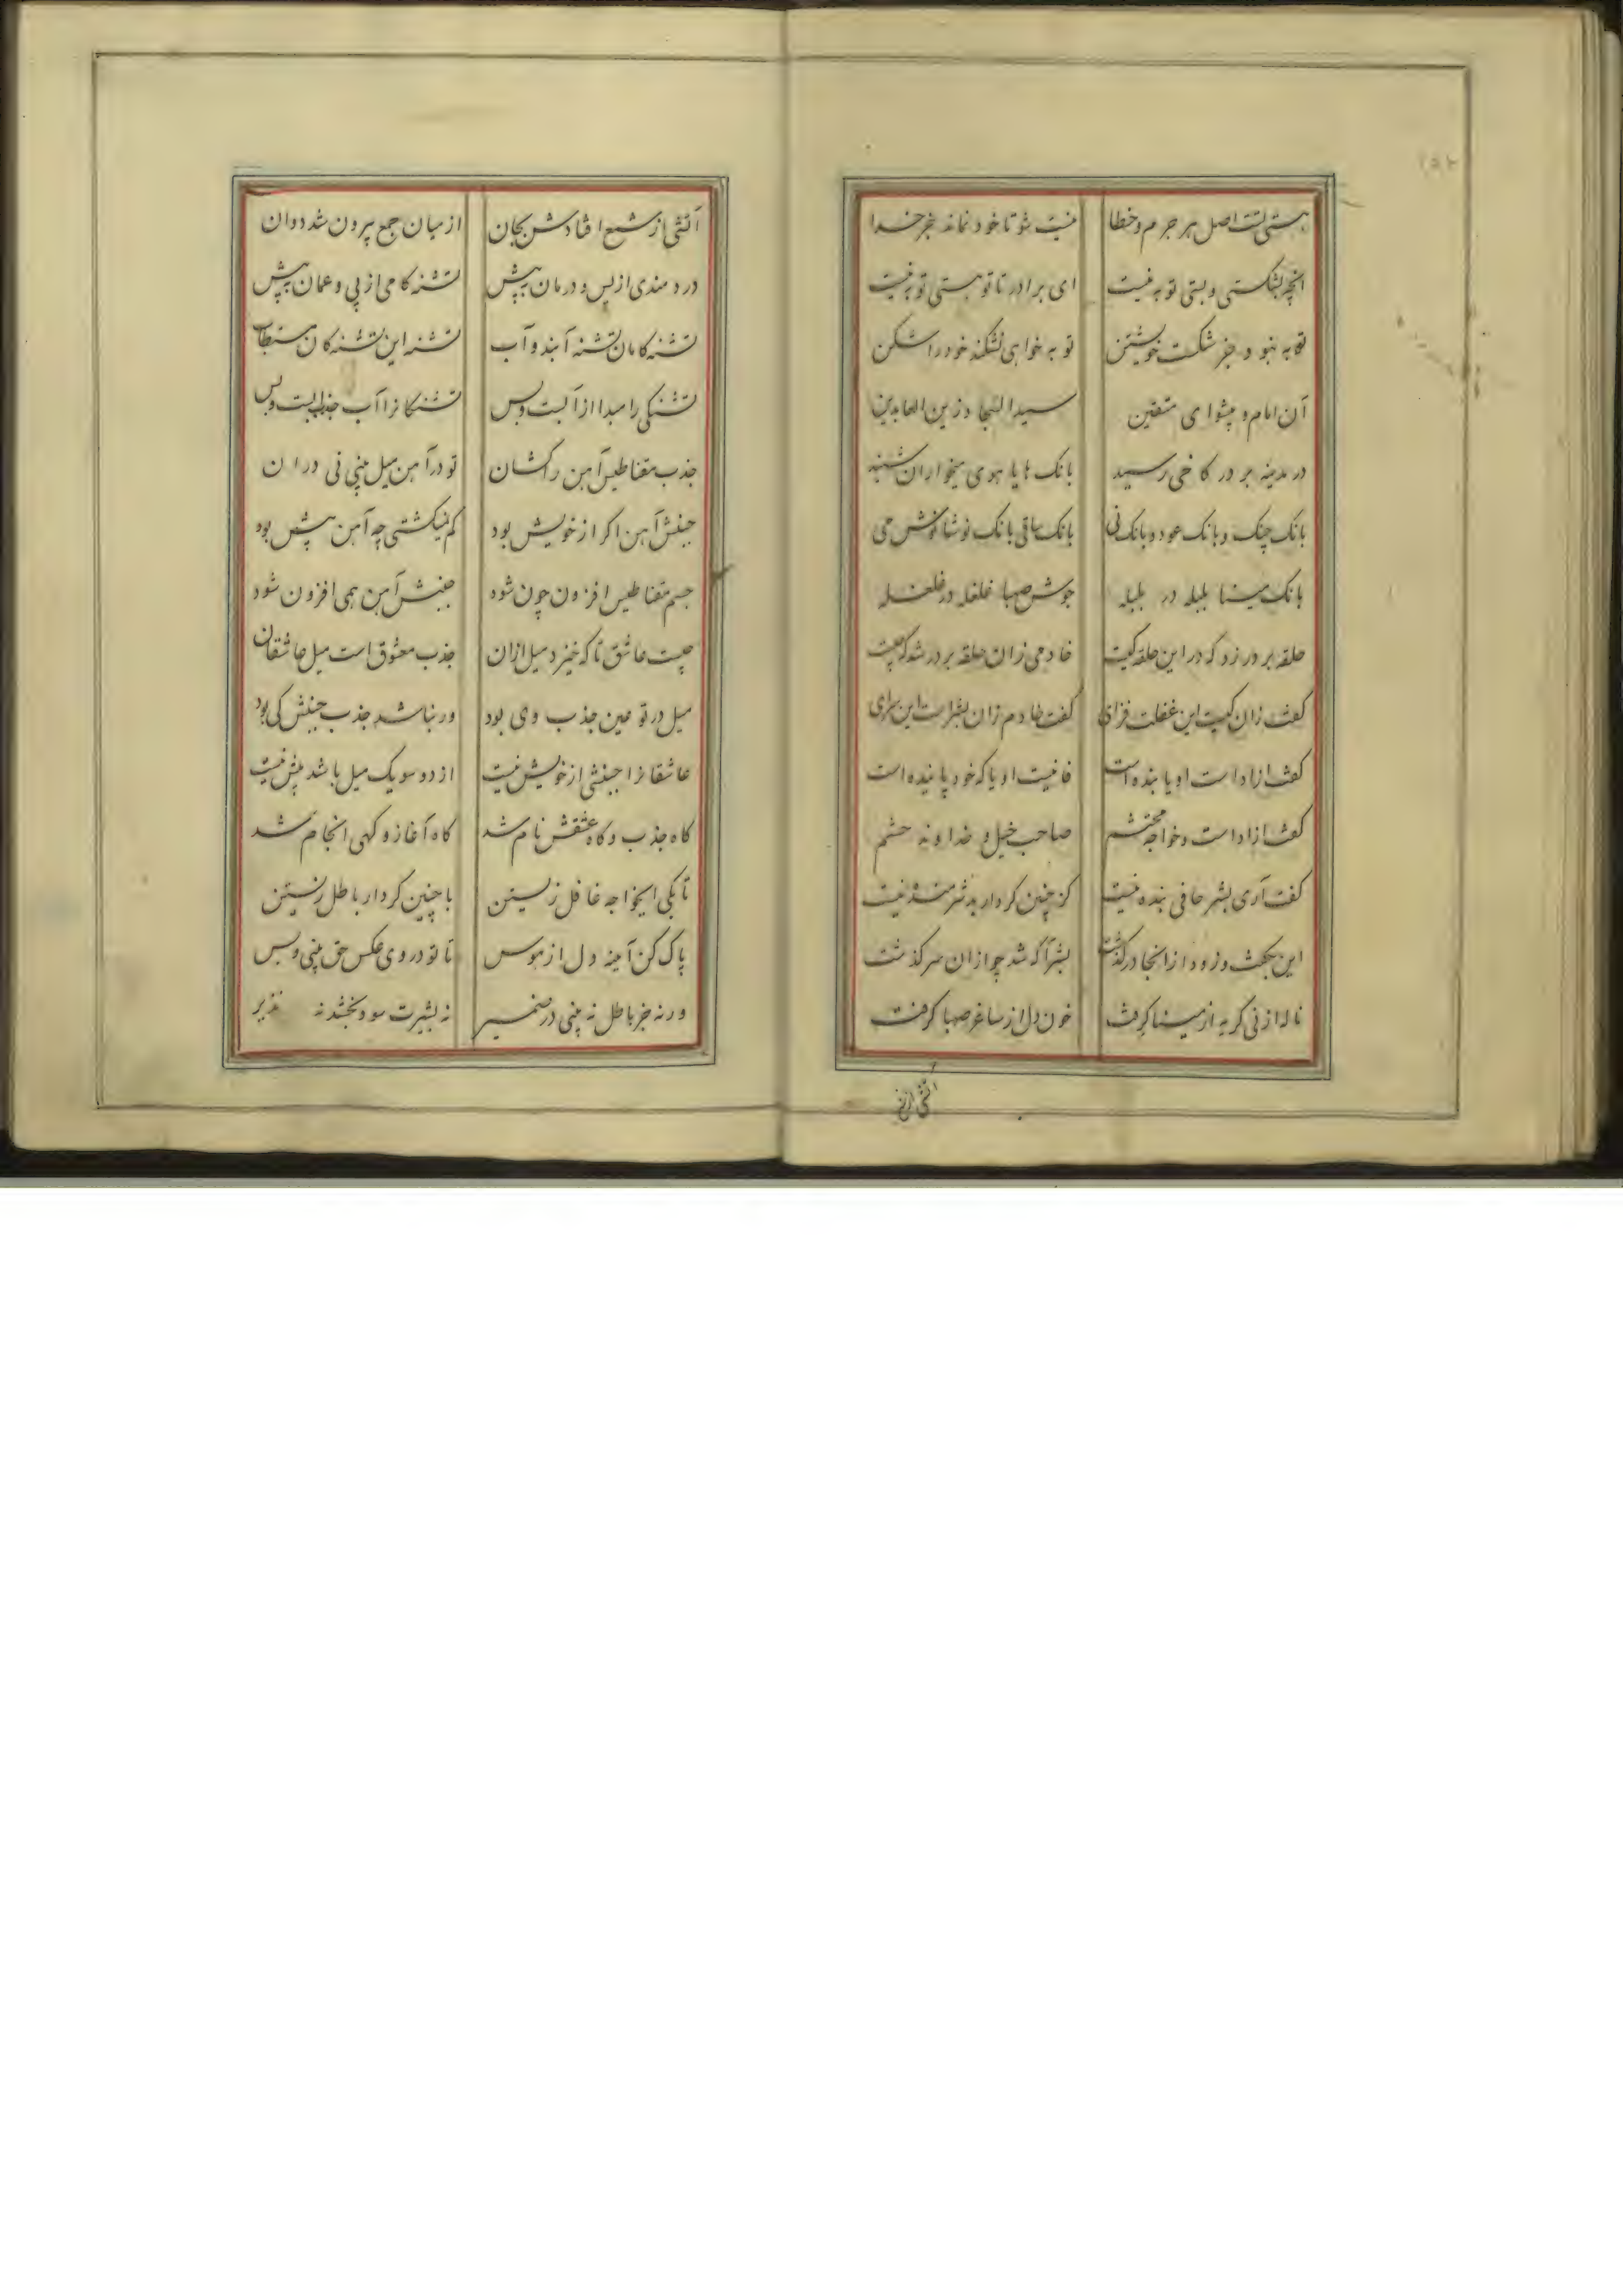 هستی تست اصل هر جرم و خطا
نیست شو تا خود نماند جز خدا
انچه بشکستی و بستی توبه نیست
ای برادر تا تو هستی توبه نیست
توبه نبود جز شکست خویشتن
توبه خواهی نشکند خود را شکن
آن امام و پیشوای متقین
سید السجاد زین العابدین
در مدینه بر در کاخی رسید
بانک هایا هوی میخواران شنید
بانک چنک و بانک عود و بانک نی
بانک ساقی بانک نوشانوش می
بانک مینا بلبله در بلبله
جوش صهبا غلغله در غلغله
حلقه بر در زد که در این حلقه کیست
خادمی زان حلقه بر در شد که چیست
کفت زان کیست این غفلت فزای
کفت خادم زان بشر است این سرای
کفت ازاد است او یا بنده است
فانیست او یا که خود پاینده است
کفت ازاد است و خواجه محتشم
صاحب خیل و خداوند حشم
کفت آری بشر حافی بنده نیست
کز چنین کردار بد شرمنده نیست
این بکفت و زود از انجا درکذشت
بشر آکه شد چو ازان سرکذشت
ناله از نی کریه از مینا کرفت
خون دل از ساغر صهبا کرفت
آتشی از
آتشی از شمع افتادش بجان
از میان جمع بیرون شد دوان
دردمندی از پس و درمان به پیش
تشنه کامی از پی و عمان به پیش
تشنه کامان تشنه آبند و آب
تشنه این تشنه کان مستطاب
تشنکی را مبدا از آبست و بس
تشنکانرا آب جذابست و بس
جذب مقناطیس آهن را کشان
تو در آهن میل بینی نی در ان
جنبش آهن اکر از خویش بود
کم نمیکشتی چه آهن بیش بود
جسم مقناطیس افزون چون شود
جنبش آهن همی افزون شود
چیست عاشق تا که خیزد میل ازان
جذب معشوق است میل عاشقان
میل در تو عین جذب وی بود
ور نباشد جذب جنبش کی بود
عاشقانرا جنبشی از خویش نیست
از دو سو یک میل باشد بیش نیست
کاه جذب و کاه عشقش نام شد
کاه آغاز و کهی انجام شد
تا بکی ایخواجه غافل زیستن
با چنین کردار باطل زیستن
پاک کن آینه دل از هوس
تا تو در وی عکس حق بینی و بس
ورنه جز باطل نه بینی در ضمیر
نه بشیرت سود بخشد نه نذیر